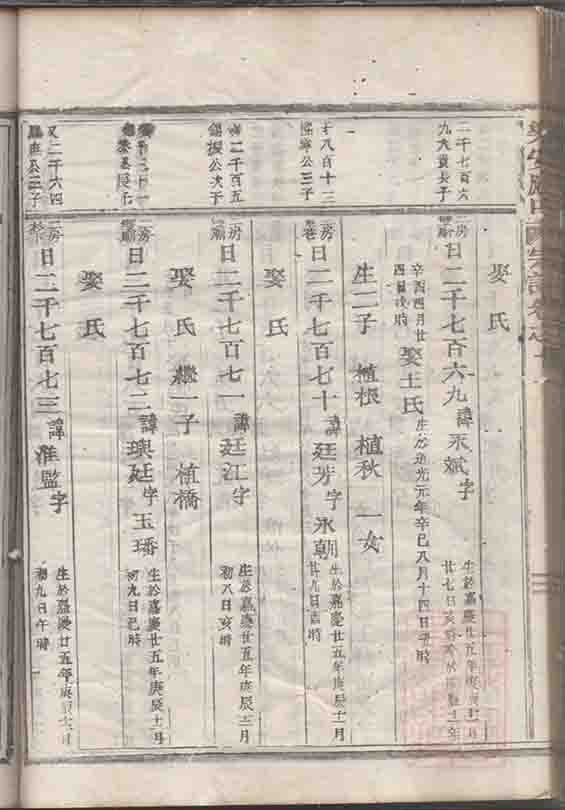 娶氏
二千七百六
九六貢長子
二房
日二千七百六九 諱永斌字
生於嘉慶廿五年庚辰十一月
廿七日亥時
辛酉四月廿
四日戌時
娶王氏
生於道光元年辛巳八月十四日子時
生二子 植根 植秋 一女
千八百十二
公三子
二房
日二千七百七十 諱廷芳字永朝
生於嘉慶廿五年庚辰十一月
廿九日吉時
娶氏
二千百五
錫振公次子
二房
日二千七百七一 諱廷江字
生於嘉慶廿五年庚辰三月
初八日亥時
娶氏 繼一子 植橋
二房
日二千七百七二 諱璵廷字玉璠
生於嘉慶廿五年庚辰十一月
初九日巳時
娶氏
又二千六四
公三子
二房
日二千七百七三 諱淮監字
生於嘉慶廿五年庚辰十二月
初九日午時